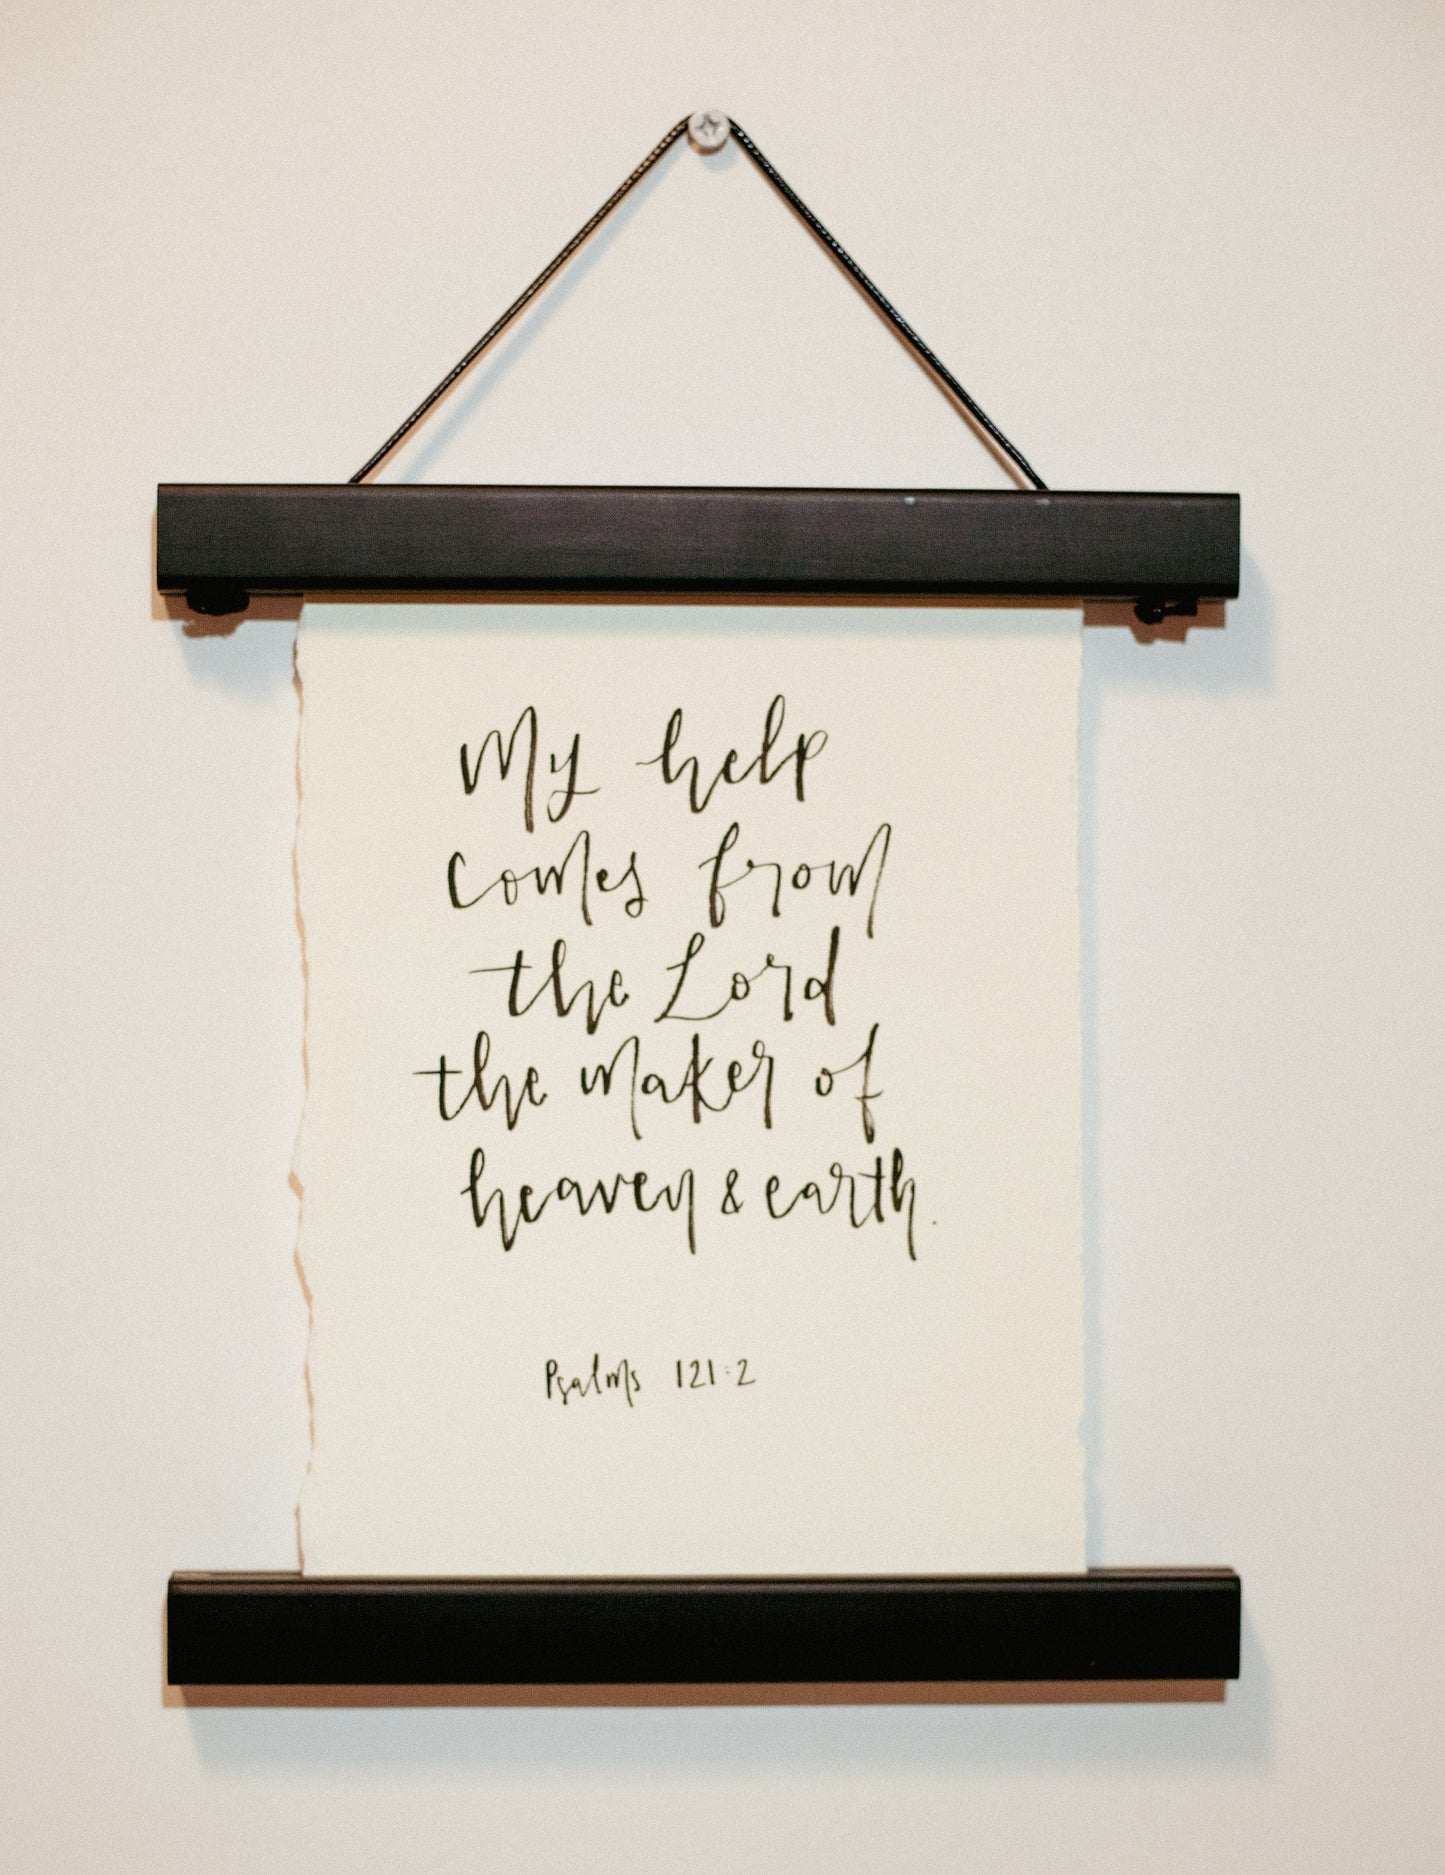 My help
comes from
the Lord
the maker of
heaven & earth.
Psalms 121:2